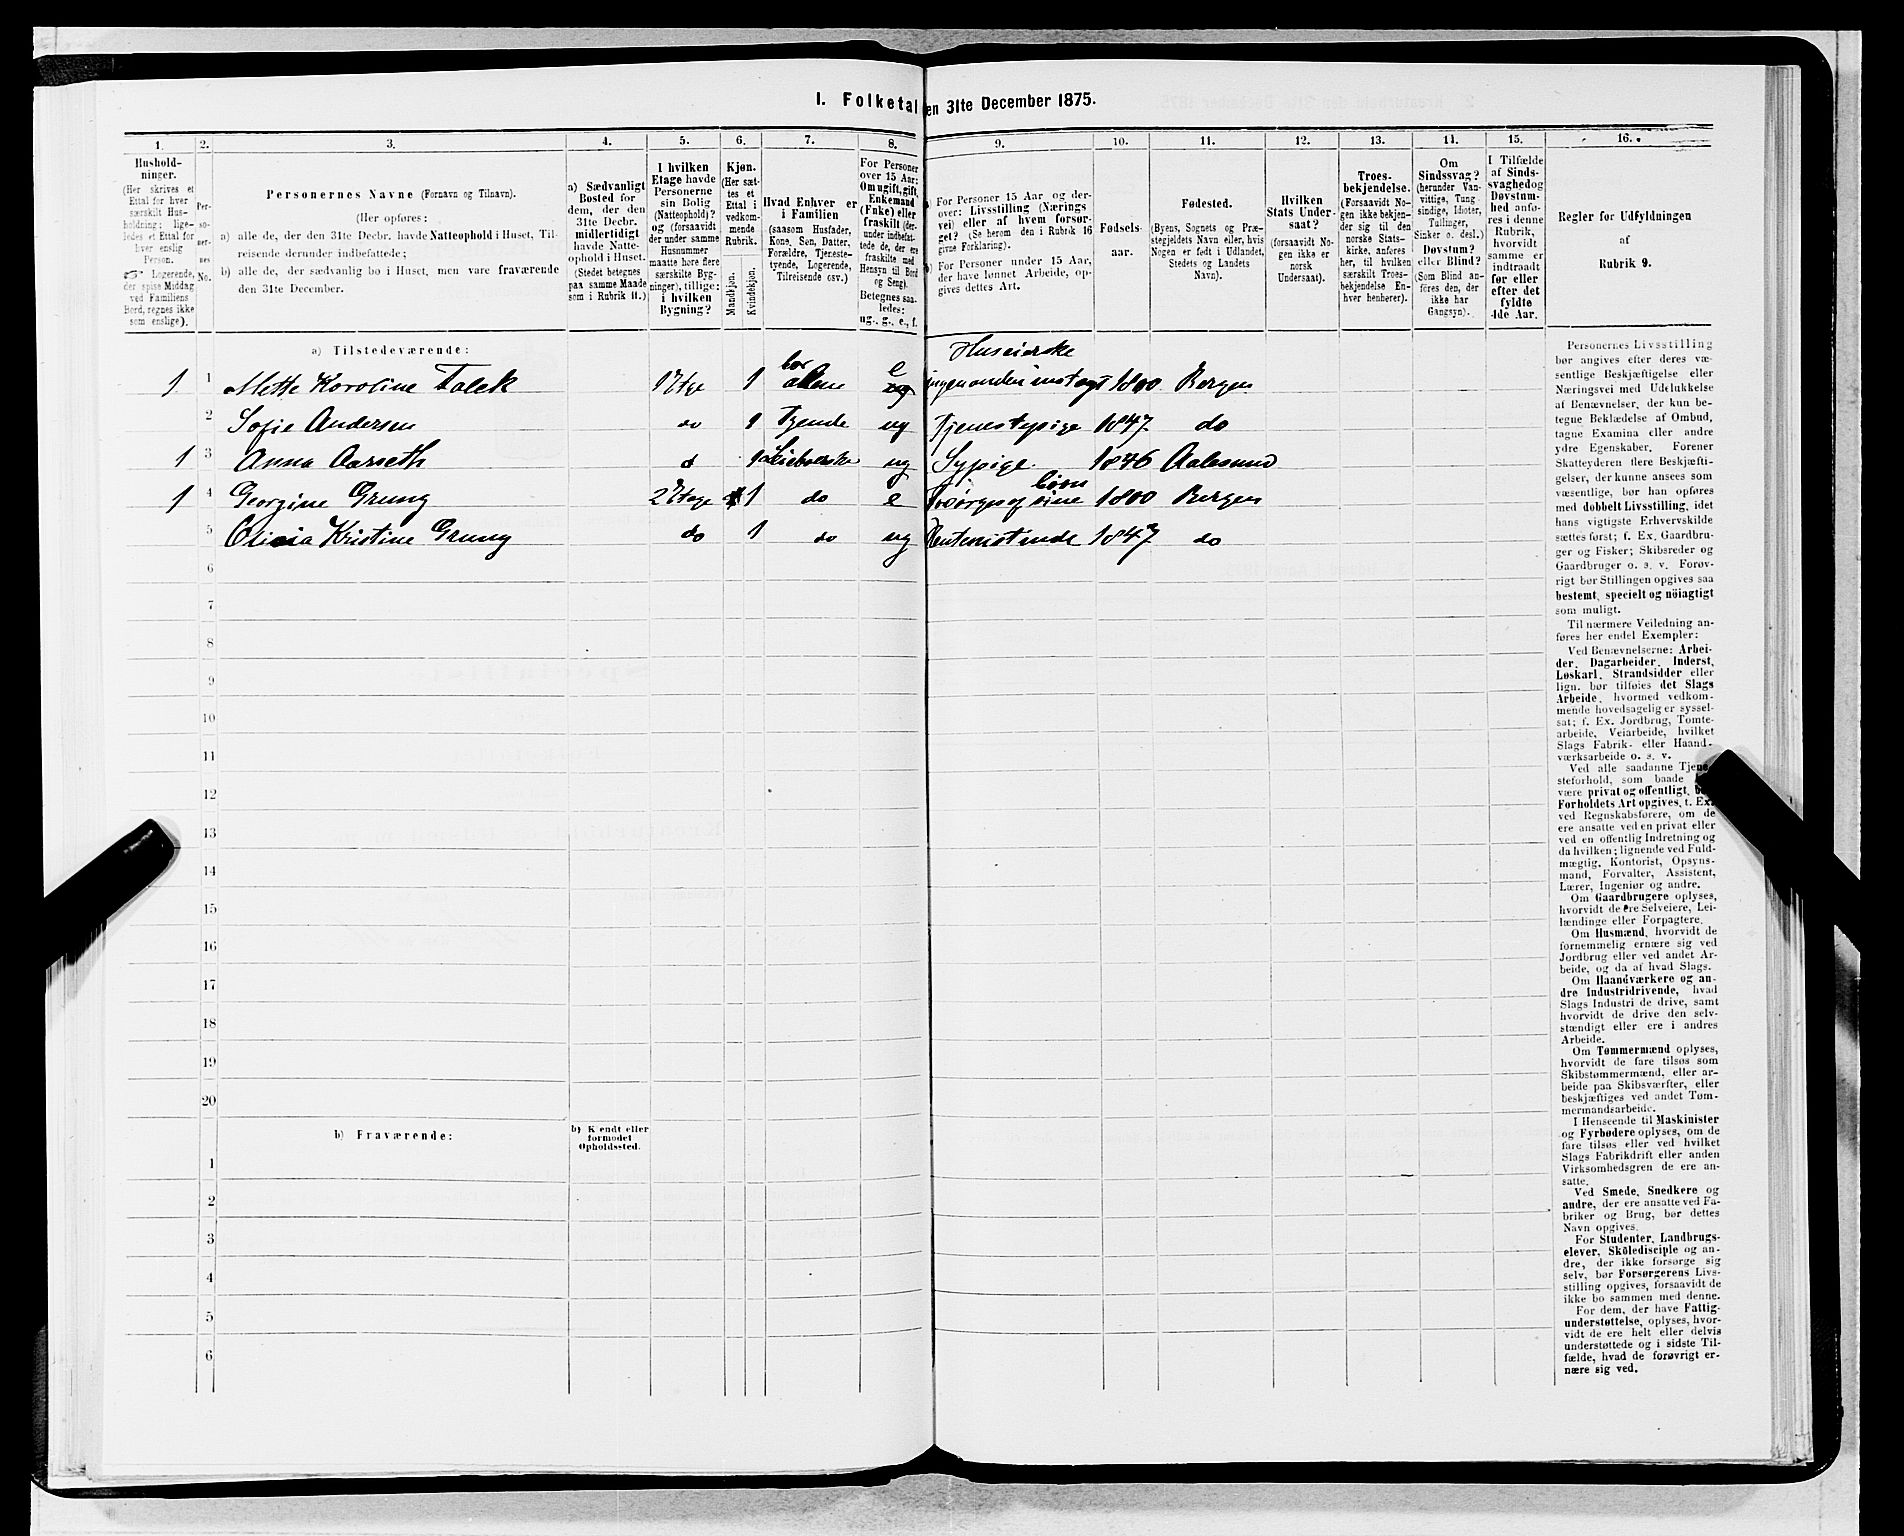 I. Folketal en 31te December 1875.
1. 2. 3. 4. 5. 6. 7. 8. 9. 10. 11. 12. 13. 14. 15. 16.
Hushold-
ninger.
(Her skrives et
Ettal for hver
særskilt Hus-
holdning; lige-
ledes et Ettal for
hver enslig
Person.
☞ Logerende,
der spise Middag
ved Familiens
Bord, regnes ikke
som enslige).
Per-
so-
ner-
nes
No.
Personernes Navne (Fornavn og Tilnavn).
(Her opføres:
a) alle de, der den 31te Decbr. havde Natteophold i Huset, Til-
reisende derunder indbefattede;
b) alle de, der sædvanlig bo i Huset, men vare fraværende
den 31te December.
a) Sædvanligt
Bosted for
dem, der den
31te Decbr.
midlertidigt
havde Natte-
ophold i Huset.
(Stedet betegnes
paa samme Maade
som i Rubrik 11.)
I hvilken
Etage havde
Personerne
sin Bolig
(Natteophold)?
og (forsaavidt
der under samme
Husnummer
maatte høre flere
særskilte Byg-
ninger), tillige:
i hvilken
Bygning?
Kjøn.
(Her sæt-
tes et
Ettal i
vedkom-
mende
Rubrik.
Mandkjøn.
Kvindekjøn.
Hvad Enhver er
i Familien
(saasom Husfader,
Kone, Søn, Datter,
Forældre, Tjeneste-
tyende, Logerende,
Tilreisende osv.)
For Personer
over 15 Aar:
Om ugift, gift,
Enkemand
(Enke) eller
fraskilt (der-
under indbefat-
tede de, der ere
fraskilte med
Hensyn til Bord
og Seng).
Betegnes saa-
ledes:
ug., g., e., f.
For Personer 15 Aar og der-
over: Livsstilling (Nærings
vei) eller af hvem forsør-
get? (Se herom den i Rubrik 16
givne Forklaring).
For Personer under 15 Aar,
der have lønnet Arbeide, op-
gives dettes Art.
Fødsels-
aar.
Fødested.
(Byens, Sognets og Præ-
stegjeldets Navn eller, hvis
Nogen er født i Udlandet,
Stedets og Landets
Navn).
Hvilken
Stats Under-
saat?
(forsaavidt No-
gen ikke er
norsk
Undersaat).
Troes-
bekjendelse.
(Forsaavidt No-
gen ikke bekjen-
der sig til den
norske Stats-
kirke, anføres
her, til hvilken
særskilt Troes-
bekjendelse En-
hver henhører).
Om
Sindssvag?
(herunder Van-
vittige, Tung
sindige, Idioter,
Tullinger,
Sinker o. desl.)
Døvstum?
eller Blind?
(Som Blind an-
føres den, der
ikke har
Gangsyn).
I Tilfælde
af Sinds-
svaghed og
Døvstum-
hed anfø-
res i denne
Rubrik,
hvorvidt
samme er
indtraadt
før eller
efter det
fyldte
4de Aar.
Regler for Udfyldningen
af
Rubrik 9.
a) Tilstedeværende:
Huseierske
1 1 Mette Karoline Falck 1 Etge 1 bor alene e ug ingen anden indtægt 1800 Bergen
2 Sofie Andersen do 1 Tjende ug Tjenestepige 1847 do
1 3 Anna Aarseth d 1 Leieboerske ug Sypige. 1846 Aalesund
1 4 Georgine Grung 2 Etage 1 do e Forsørges af sine børn 1800 Bergen
5 Kristine Grung do 1 do ug Rentenistinde 1847 do
6
7
8
9
10
11
12
13
14
15
16
17
18
19
20
b) Fraværende:
b) Kjendt eller
formodet
Opholdssted.
1
2
3
4
5
6
Personernes Livsstilling
bør angives efter deres væ-
sentlige Beskjæftigelse eller
Næringsvei med Udelukkelse
af Benævnelser, der kun be-
tegne Beklædelse af Ombud,
tagne Examina eller andre
ydre Egenskaber. Forener
Skatteyderen flere Beskjæfti-
gelser, der kunne ansees som
væsentlige, bør han opføres
med dobbelt Livsstilling, idet
hans vigtigste Erhvervskilde
sættes først; f. Ex. Gaardbru-
ger og Fisker; Skibsreder og
Gaardbruger o. s. v. Forøv-
rigt bør Stillingen opgives saa
bestemt, specielt og nöiagtigt
som muligt.
Til nærmere Veiledning an-
føres her endel Exempler:
Ved Benævnelserne: Arbei-
der, Dagarbeider, Inderst,
Løskarl, Strandsidder eller
lign. bør tilføies det Slags
Arbeide, hvormed vedkom-
mende hovedsagelig er syssel-
sat; f. Ex. Jordbrug, Tomte-
arbeide, Veiarbeide, hvilket
Slags Fabrik- eller Haand-
værksarbeide o. s. v.
Ved alle saadanne Tjene
steforhold, som baade
være privat og offentligt, bør
Forholdets Art opgives, t. Ex.
ved Regnskabsførere, om de
ere ansatte ved en privat eller
ved en offentlig Indretning og
da hvilken; lignende ved Fuld-
mægtig, Kontorist, Opsyns-
mand, Forvalter, Assistent,
Lærer, Ingeniør og andre.
Om Gaardbrugere oplyses,
hvorvidt de ere Selveiere, Lei-
lændinge eller Forpagtere.
Om Husmænd, hvorvidt de
fornemmelig ernære sig ved
Jordbrug eller ved andet Ar-
beide, og da af hvad Slags.
Om Haandværkere og an-
dre Industridrivende, hvad
Slags Industri de drive, samt
hvorvidt de drive den selv-
stændigt eller ere i andres
Arbeide.
Om Tømmermænd oplyses,
hvorvidt de fare tilsøs som
Skibstømmermænd, eller ar-
beide paa Skibsværfter, eller
beskjæftiges ved andet Tøm-
mermandsarbeide.
I Henseende til Maskinister
og Fyrbødere oplyses, om de
fare tilsøs eller ved hvilket
Slags Fabrikdrift eller anden
Virksomhedsgren de ere an-
satte.
Ved Smede, Snedkere og
andre, der ere ansatte ved Fa-
briker og Brug, bør dettes
Navn opgives.
For Studenter, Landbrugs-
elever, Skôledisciple og an-
dre, der ikke forsørge sig
selv, bør Forsørgerens Livs-
stilling opgives, forsaavidt de
ikke bo sammen med denne.
For dem, der have Fattig-
understøttelse, oplyses, hvor-
vidt de ere helt eller delvis
understøttede og i sidste Til-
fælde, hvad de forøvrigt er-
nære sig ved.